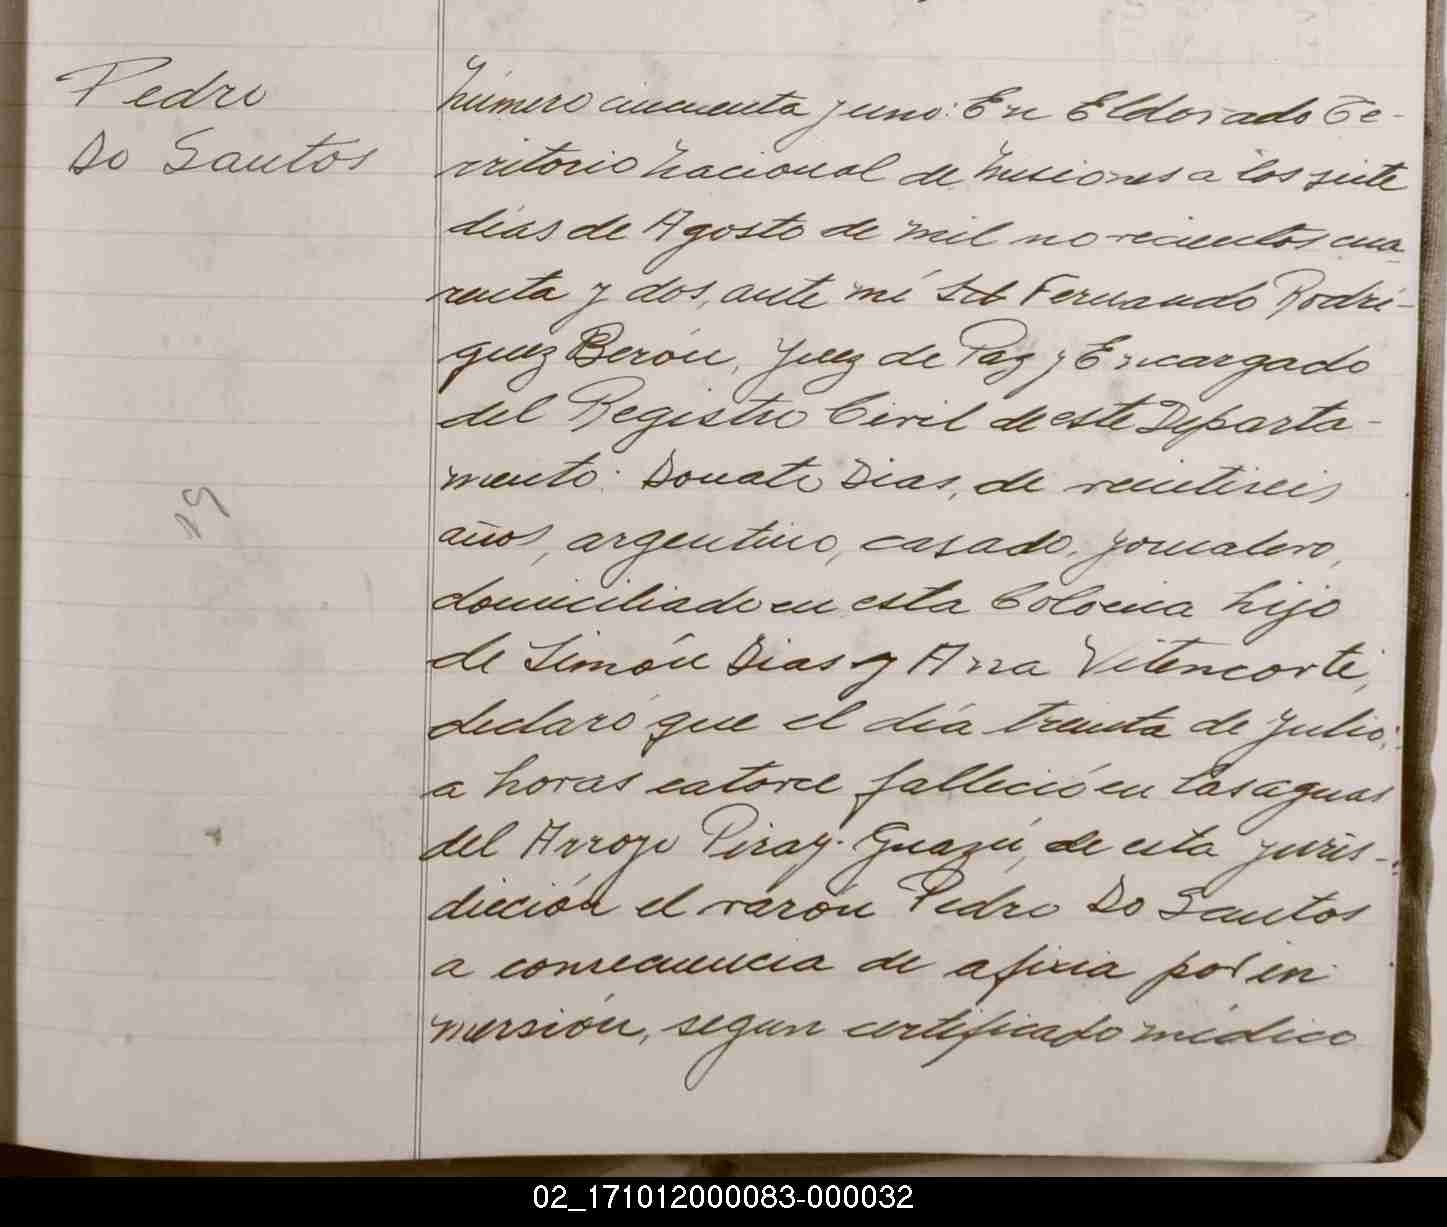 Pedro
Do Santos
19
Número cincuenta y uno: En Eldorado Te-
rritorio Nacional de Misiones a los siete
días de Agosto de mil novecientos cua
renta y dos, ante mí Fernando Rodrí-
guez Berón, Juez de Paz y Encargado
del Registro Civil de este Departa-
mento: Donato Dias, de veintiseis
años, argentino, casado, jornalero,
domiciliado en esta Colonia hijo
de Simón Dias y Ana Vitencorte,
declaró que el día treinta de Julio,
a horas catorce falleció en las aguas
del Arroyo Piray-Guazú, de esta juris-
dicción el varón Pedro Do Santos
a consecuencia de afixia por in
mersión, segun certificado médico
02_171012000083-000032